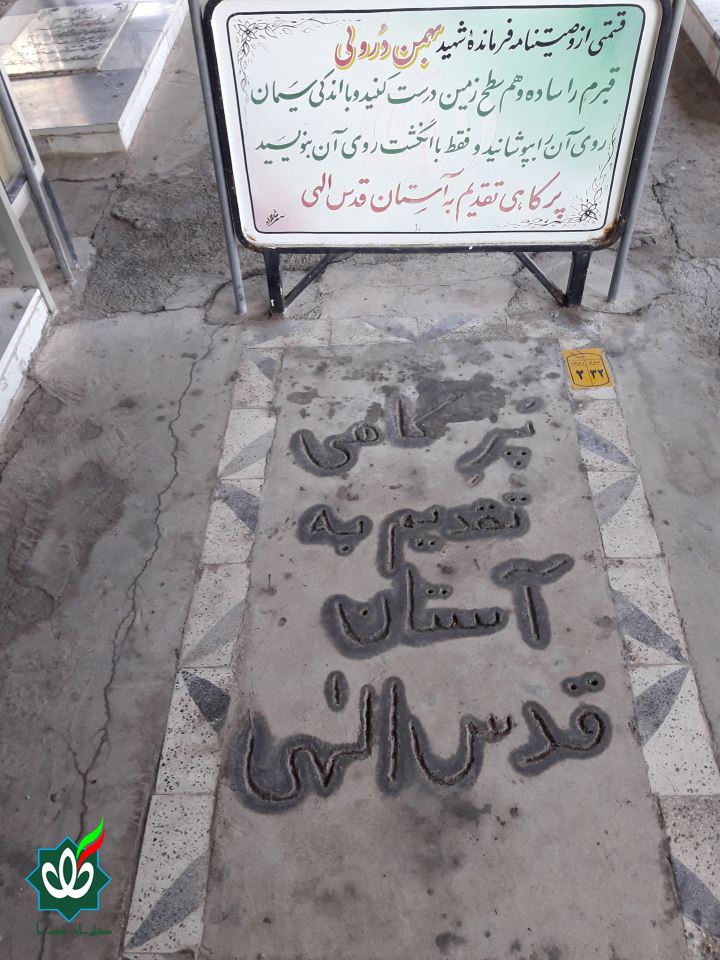 قسمتی از وصیتنامه فرماندهٔ شهید بهمن دُرولی
قبرم را ساده و هم سطح زمین درست کنید و با اندکی سیمان
روی آن را بپوشانید و فقط با انگشت روی آن بنویسید
پر کاهی تقدیم به آستان قدس الهی
مزار ردیف
۳۲ ۲
پَرِ کاهی
تقدیم به
آستان
قدس الهی